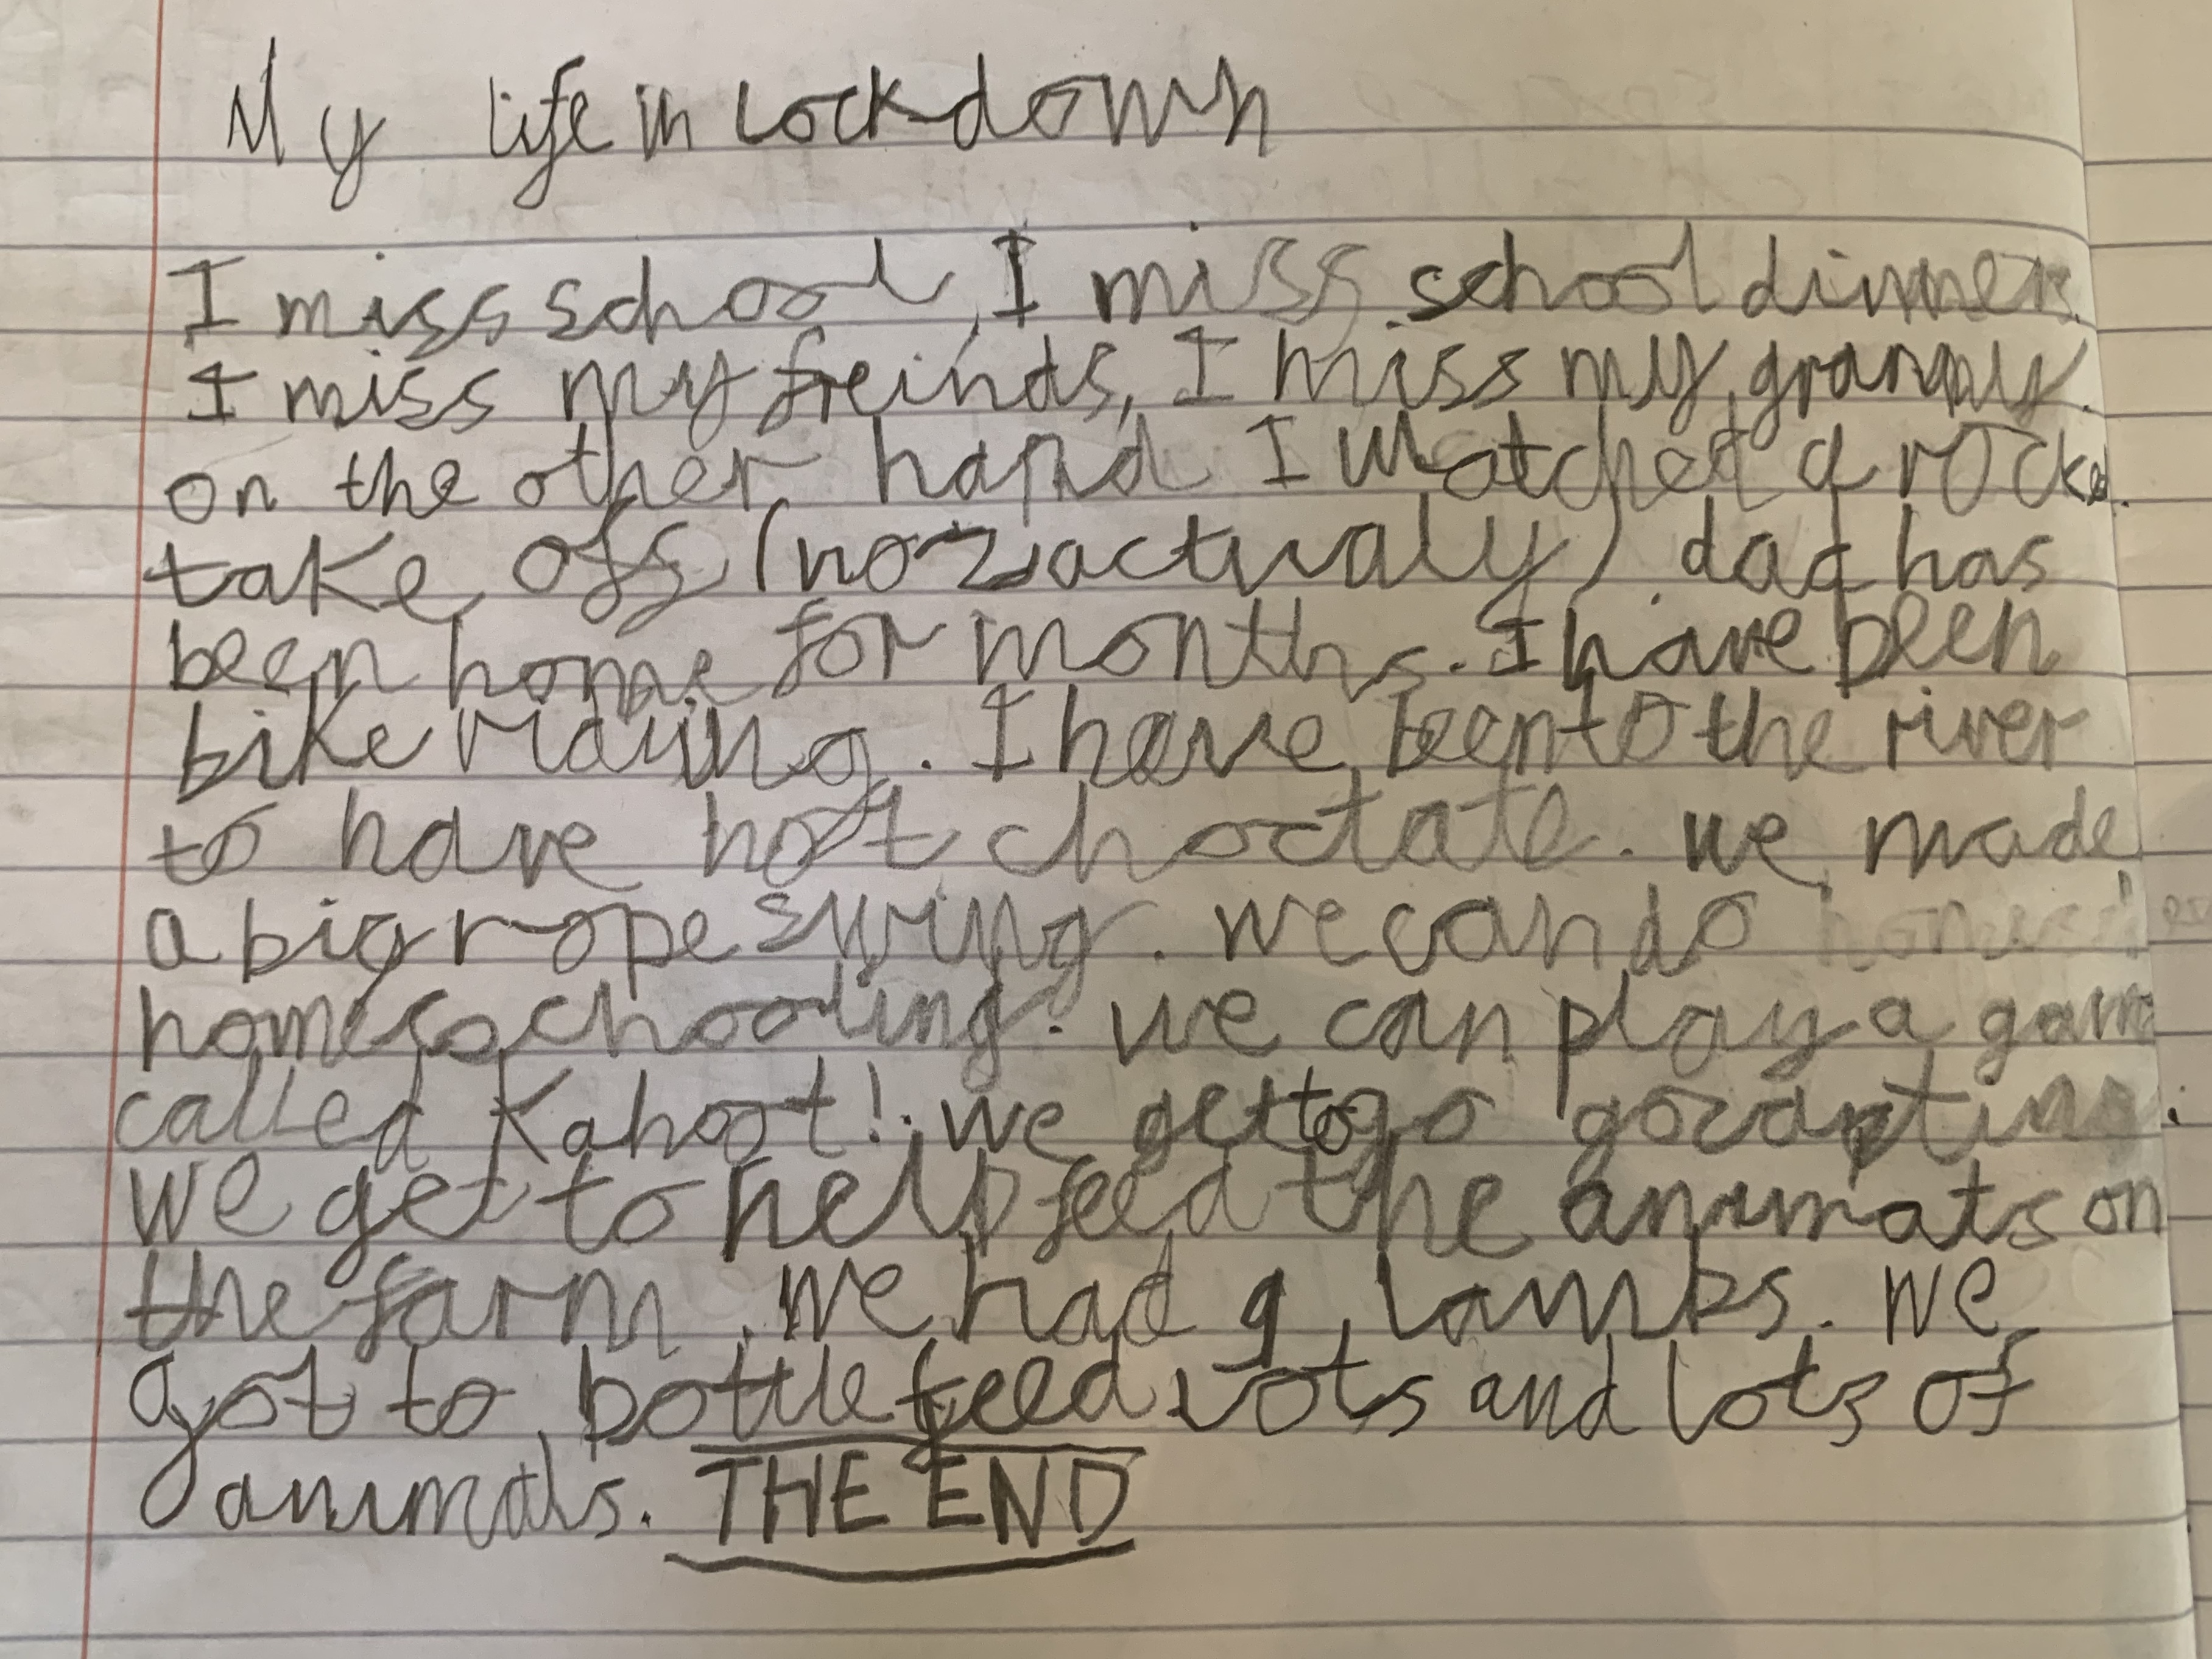 My life in Lockdown
I miss school, I miss school dinners.
I miss my freinds, I miss my granny.
on the other hand I watched a rocket
take off (not actualy). dad has
been home for months. I have been
bike riding. I have been to the river
to have hot choclate. we made
a big rope swing. we can do
homeschooling. we can play a game
called Kahoot!. we get to go gocarting.
we get to help feed the animals on
the farm. we had 9 lambs. we
got to bottle feed lots and lots of
animals. THE END